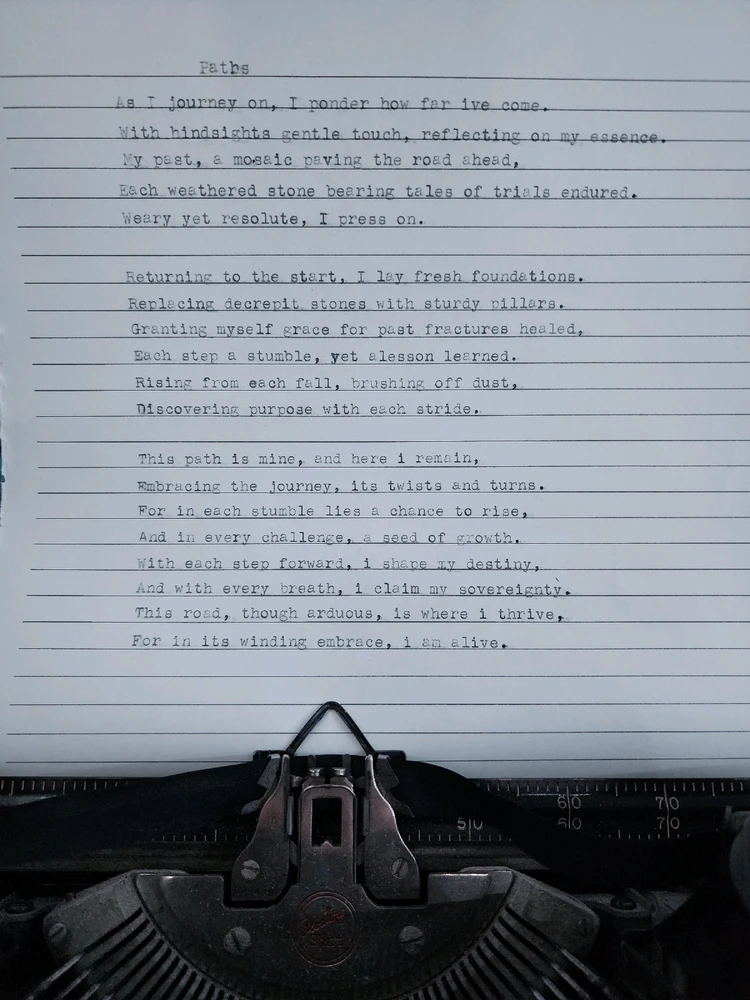 Paths
As I journey on, I ponder how far ive come.
With hindsights gentle touch, reflecting on my essence.
My past, a mosaic paving the road ahead,
Each weathered stone bearing tales of trials endured.
Weary yet resolute, I press on.
Returning to the start, I lay fresh foundations.
Replacing decrepit stones with sturdy pillars.
Granting myself grace for past fractures healed,
Each step a stumble, yet alesson learned.
Rising from each fall, brushing off dust,
Discovering purpose with each stride.
This path is mine, and here i remain,
Embracing the journey, its twists and turns.
For in each stumble lies a chance to rise,
And in every challenge, a seed of growth.
With each step forward, i shape my destiny,
And with every breath, i claim my sovereignty.
This road, though arduous, is where i thrive,
For in its winding embrace, i am alive.
60 70
50 60 70